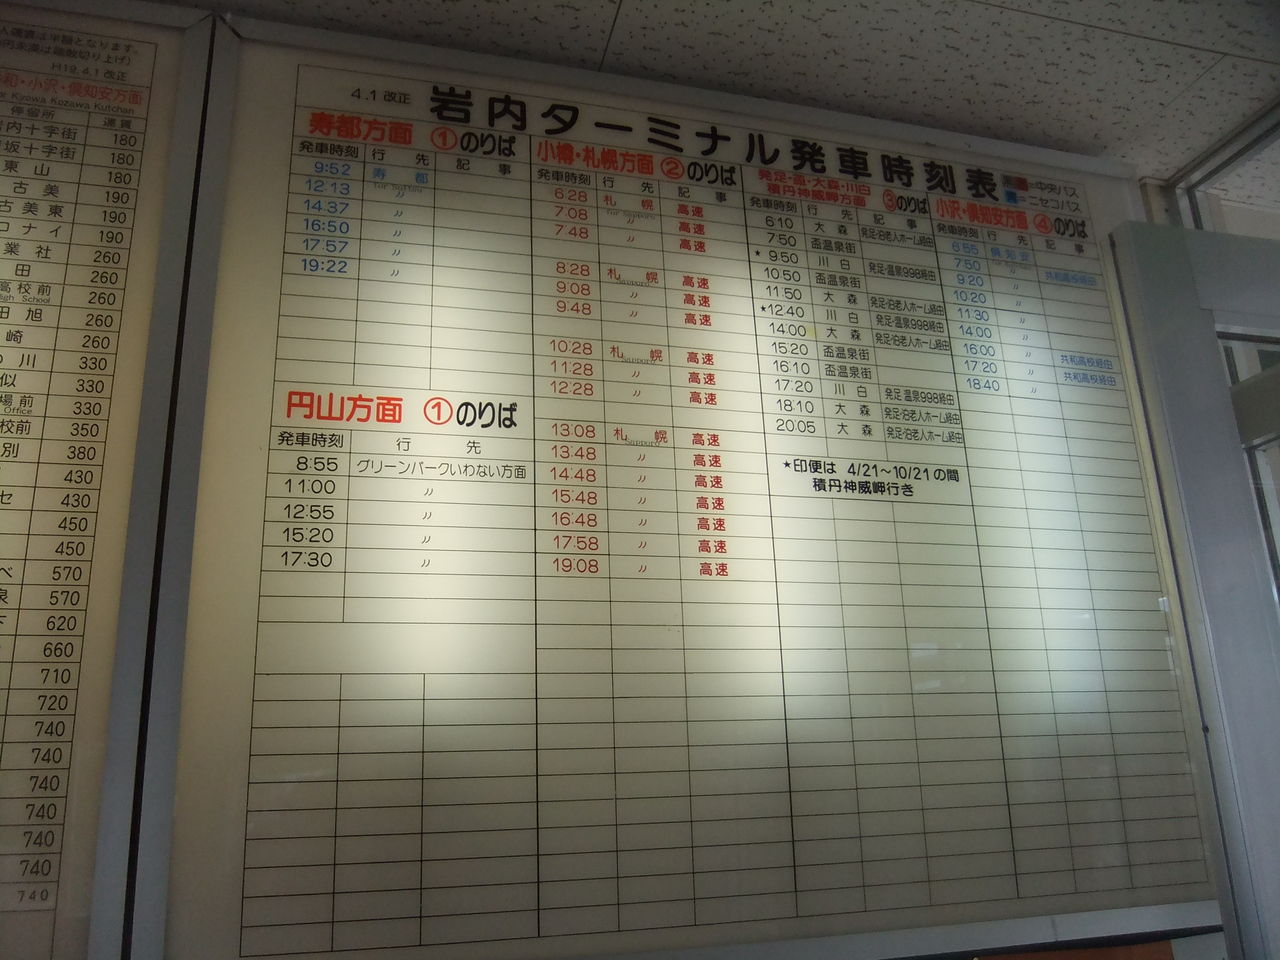 人歳書は半額となります。
円未満は端数切り上げ)
H19.4.1 改正
和・小沢・倶知安方面
Kyowa Kozawa Kutchan
停留所 運賃
岩内十字街 180
坂十字街 180
東山 180
古美 190
古美東 190
ロナイ 190
業社 260
田 260
高校前 260
High School
田旭 260
崎 260
の川 330
似 330
場前 330
Office
校前 350
別 380
430
セ 430
450
450
べ 570
泉 570
下 620
660
710
720
740
740
740
740
740
740
740
4.1 改正 岩内ターミナル発車時刻表
=中央バス
=ニセコバス
寿都方面 ①のりば
発車時刻 行先 記事
9:52 寿都
12:13 〃
14:37 〃
16:50 〃
17:57 〃
19:22 〃
円山方面 ①のりば
発車時刻 行先
8:55 グリーンパークいわない方面
11:00 〃
12:55 〃
15:20 〃
17:30 〃
小樽・札幌方面 ②のりば
発車時刻 行先 記事
6:28 札幌 高速
for Sapporo
7:08 〃 高速
7:48 〃 高速
8:28 札幌 高速
Sapporo
9:08 〃 高速
9:48 〃 高速
10:28 札幌 高速
Sapporo
11:28 〃 高速
12:28 〃 高速
13:08 札幌 高速
Sapporo
13:48 〃 高速
14:48 〃 高速
15:48 〃 高速
16:48 〃 高速
17:58 〃 高速
19:08 〃 高速
発足・泊・大森・川白
積丹神威岬方面 ③のりば
発車時刻 行先 記事
6:10 大森 発足・泊老人ホーム経由
7:50 盃温泉街
★9:50 川白 発足・温泉998経由
10:50 盃温泉街
11:50 大森 発足・泊老人ホーム経由
★12:40 川白 発足・温泉998経由
14:00 大森 発足・泊老人ホーム経由
15:20 盃温泉街
16:10 盃温泉街
17:20 川白 発足 温泉998経由
18:10 大森 発足・泊老人ホーム経由
20:05 大森 発足・泊老人ホーム経由
★印便は 4/21～10/21の間
積丹神威岬行き
小沢・倶知安方面 ④のりば
発車時刻 行先 記事
6:55 倶知安
7:50 〃 共和高校経由
9:20 〃
10:20 〃
11:30 〃
14:00 〃
16:00 〃 共和高校経由
17:20 〃 共和高校経由
18:40 〃